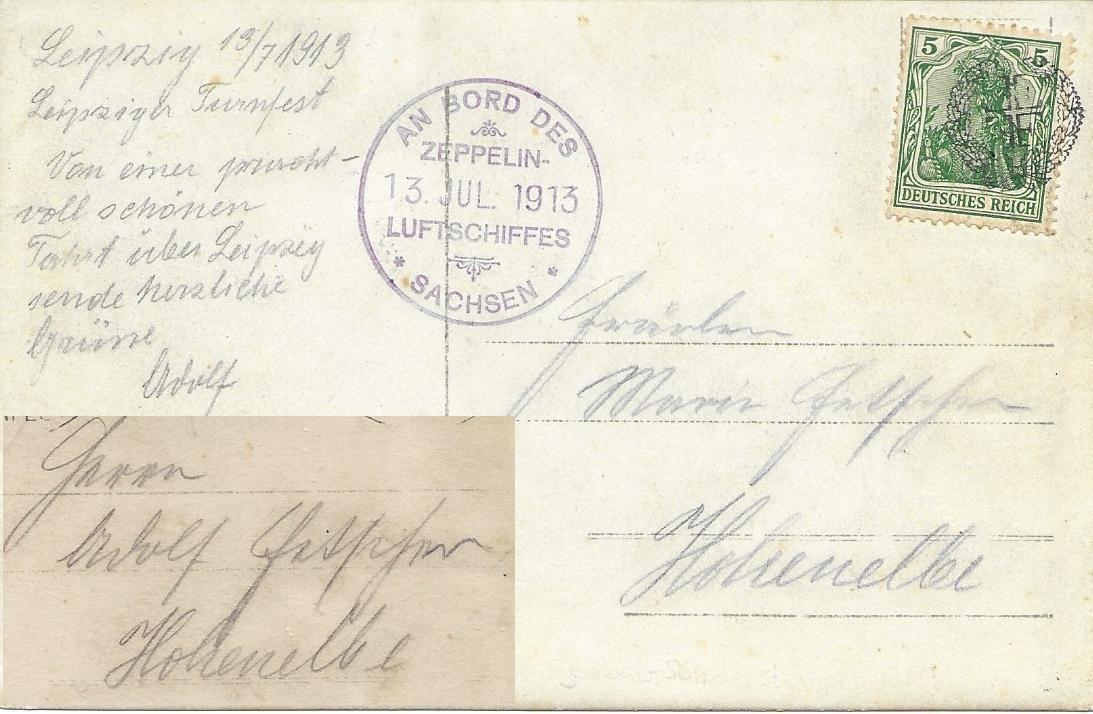 Leipzig 13/7 1913
Leipziger Turnfest
Von einer pracht-
voll schönen
Fahrt über Leipzig
sende herzliche
Grüsse
Adolf
AN BORD DES
ZEPPELIN-
13. JUL. 1913
LUFTSCHIFFES
* SACHSEN *
5 5
DEUTSCHES REICH
Fräulein
Marie Fetscher
Hohenelbe
Herrn
Adolf Fetscher
Hohenelbe